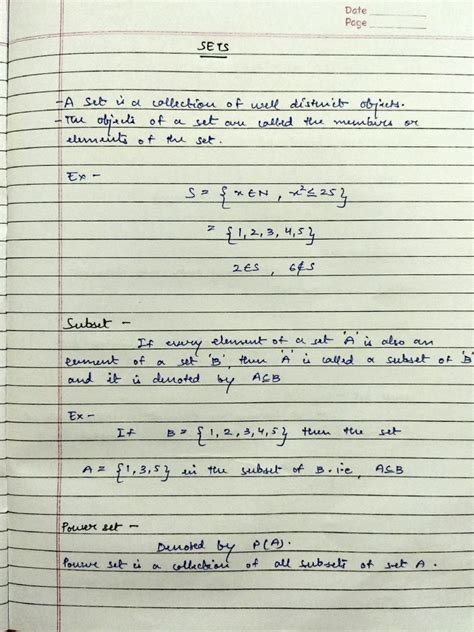 Date
Page
SETS
- A set is a collection of well distinct objects.
- The objects of a set are called the members or
elements of the set.
Ex -
S = { x ∈ N , x² ≤ 25}
= {1, 2, 3, 4, 5}
2 ∈ S , 6 ∉ S
Subset -
If every element of a set 'A' is also an
element of a set 'B', then 'A' is called a subset of 'B'
and it is denoted by A⊆B
Ex -
If B = {1, 2, 3, 4, 5} then the set
A = {1, 3, 5} in the subset of B. i.e, A⊆B
Power set -
Denoted by P(A).
Power set is a collection of all subsets of set A.